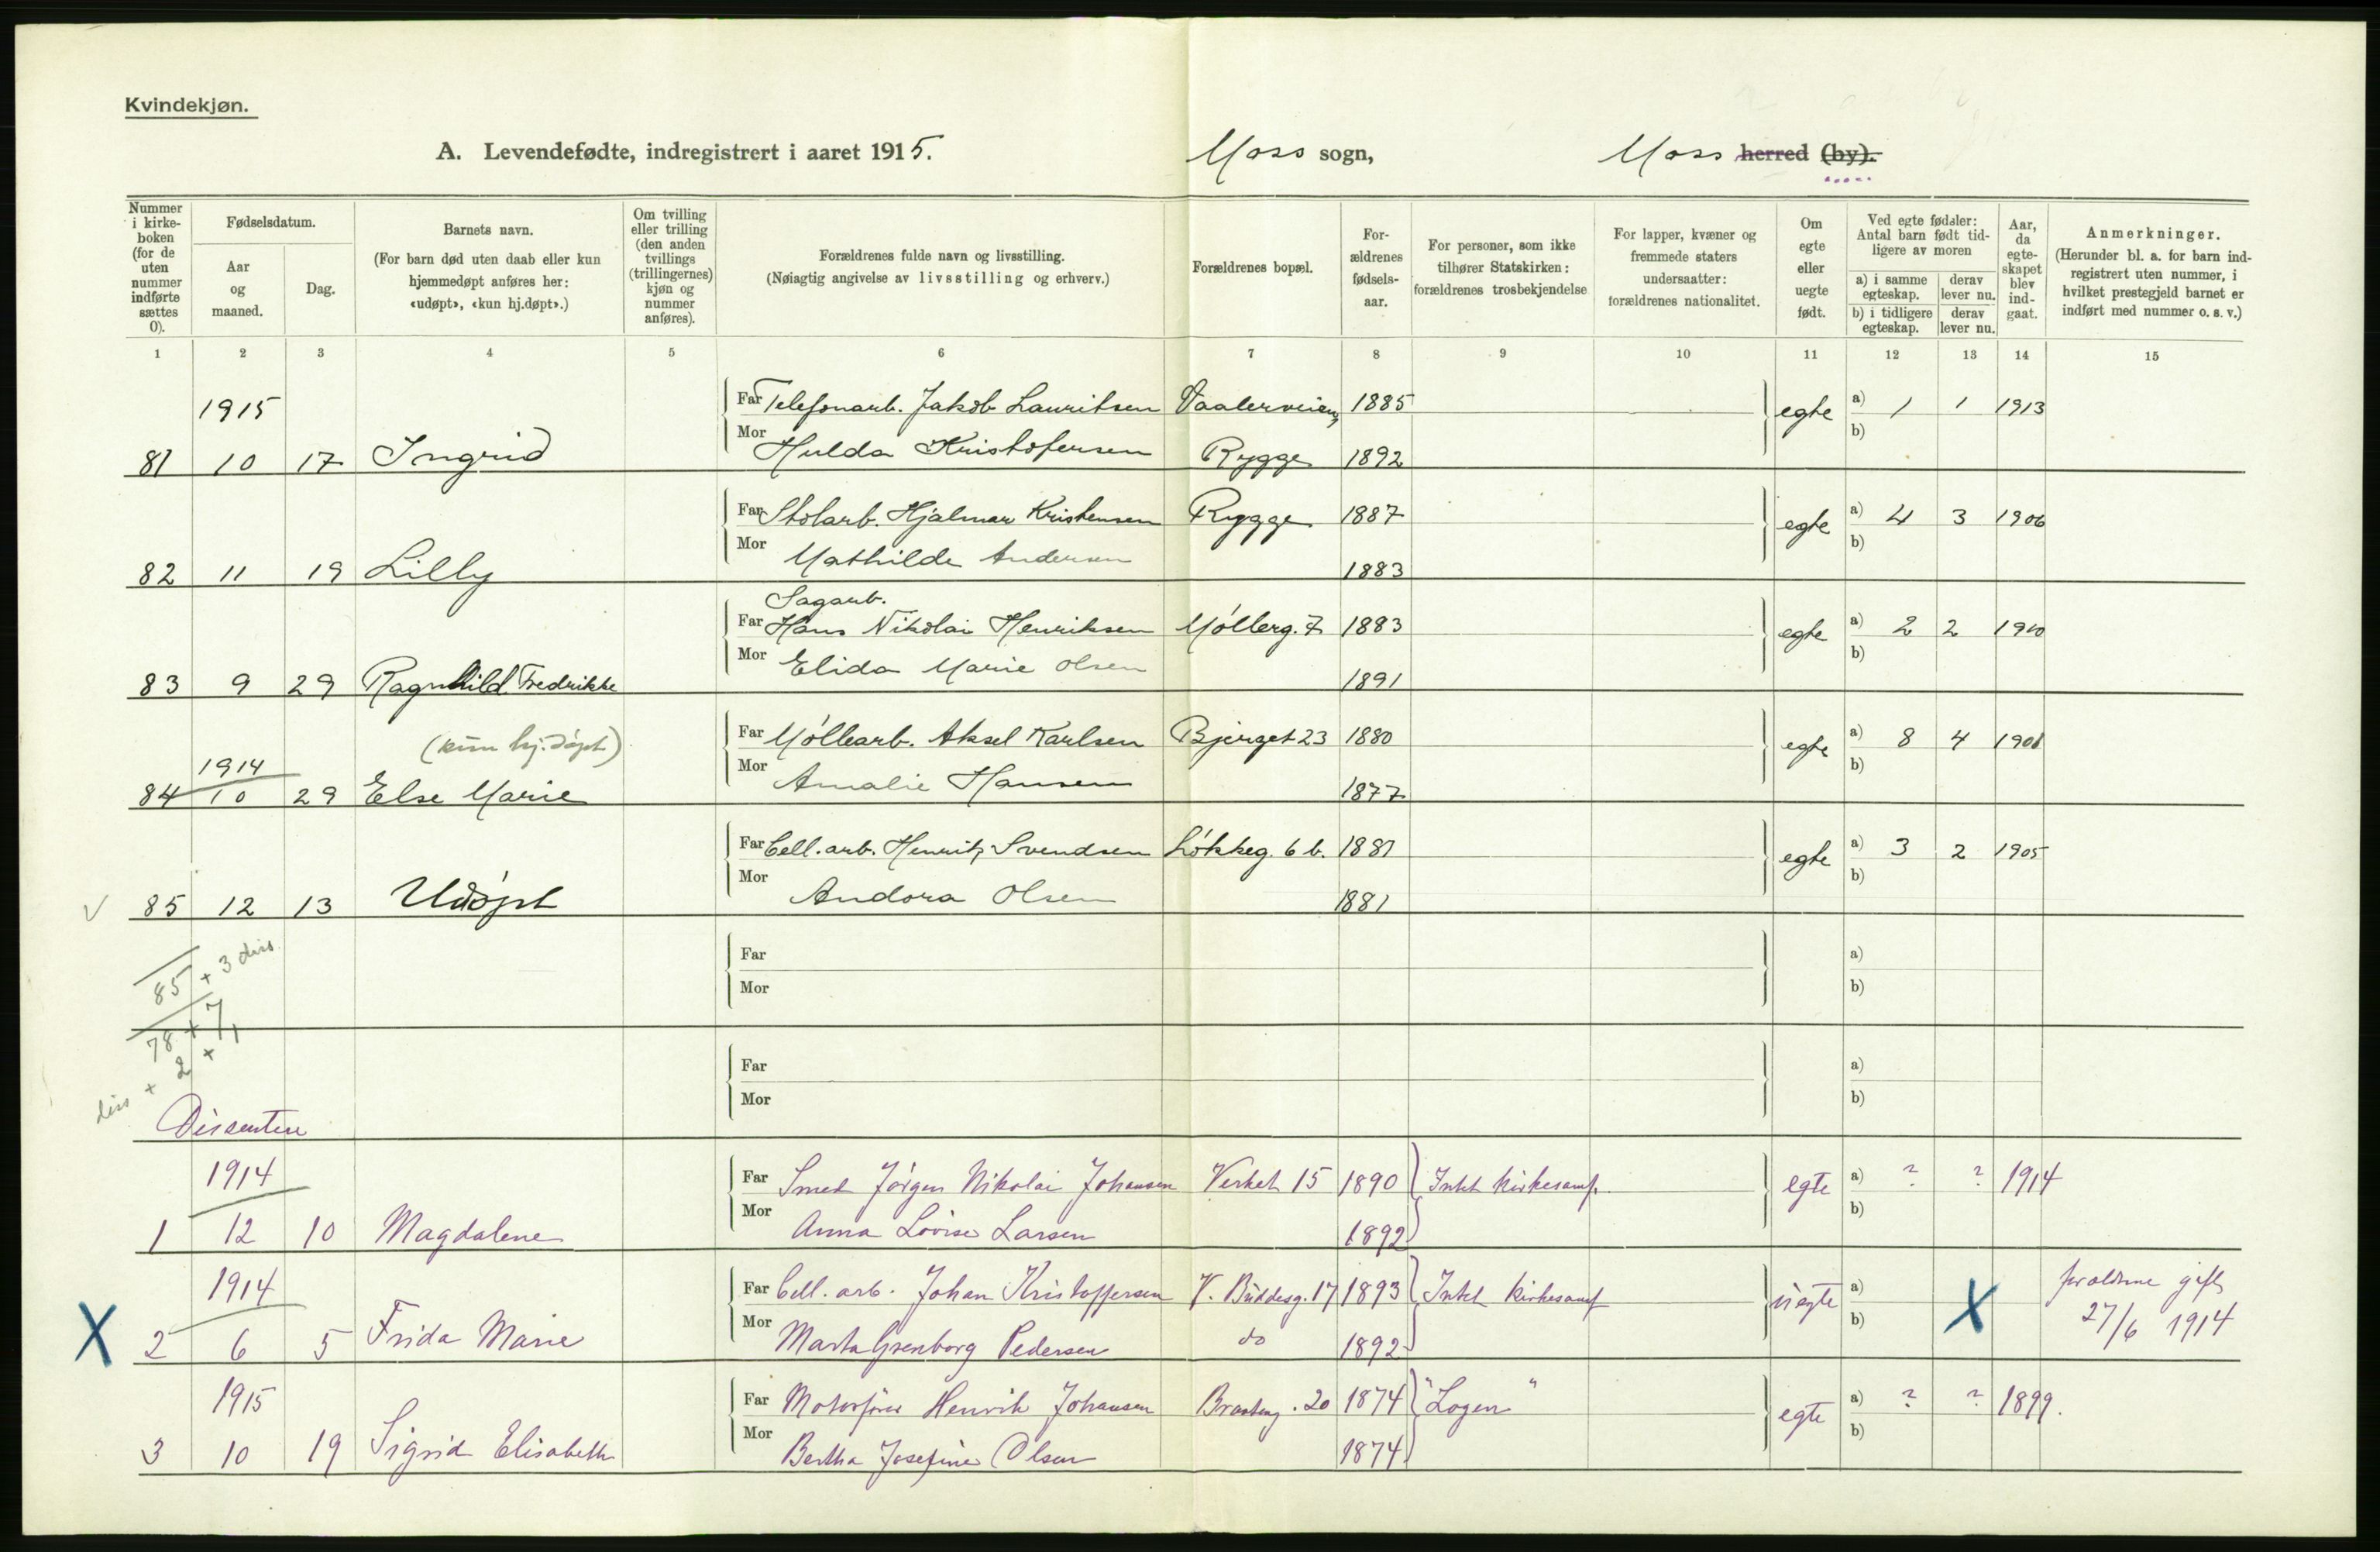 Kvindekjøn.
A. Levendefødte, indregistrert i aaret 1915. Moss sogn, Moss herred (by).
Nummer i kirkeboken (for de uten nummer indførte sættes 0).
Fødselsdatum.
Aar og maaned.
Dag.
Barnets navn.
(For barn død uten daab eller kun hjemmedøpt anføres her: «udøpt», «kun hj.døpt».)
Om tvilling eller trilling (den anden tvillings (trillingernes) kjøn og nummer anføres).
Forældrenes fulde navn og livsstilling.
(Nøiagtig angivelse av livsstilling og erhverv.)
Forældrenes bopæl.
For-ældrenes fødsels-aar.
For personer, som ikke tilhører Statskirken: forældrenes trosbekjendelse
For lapper, kvæner og fremmede staters undersaatter: forældrenes nationalitet.
Om egte eller uegte født.
Ved egte fødsler: Antal barn født tid-ligere av moren
a) i samme egteskap.
derav lever nu.
b) i tidligere egteskap.
derav lever nu.
Aar, da egte-skapet blev ind-gaat.
Anmerkninger.
(Herunder bl. a. for barn ind-registrert uten nummer, i hvilket prestegjeld barnet er indført med nummer o. s. v.)
1 2 3 4 5 6 7 8 9 10 11 12 13 14 15
1915 Far Telefonarb. Jakob Lauritsen Vaalerveien, 1885 egte a) 1 1 1913
81 10 17 Ingrid Mor Hulda Kristofersen Rygge 1892 b)
Far Stolarb. Hjalmar Kristensen Rygge 1887 egte a) 4 3 1906
82 11 19 Lilly Mor Mathilde Andersen 1883 b)
Sagarb.
Far Hans Nikolai Henriksen Mølleg. 7 1883 egte a) 2 2 1910
83 9 29 Ragnhild Fredrikke Mor Elida Marie Olsen 1891 b)
(kun hj.døpt) Far Møllearb. Aksel Karlsen Bjerget 23 1880 egte a) 8 4 1901
1914
84 10 29 Else Marie Mor Amalie Hansen 1877 b)
Far Cell. arb. Henrik Svendsen Løkkeg. 6 b. 1881 egte a) 3 2 1905
85 12 13 Udøpt Mor Andora Olsen 1881 b)
85 + 3 diss.
Far a)
Mor b)
78 + 7
diss + 2 + 1
Far a)
Mor b)
Dissentere
1914 Far Smed Jørgen Nikolai Johansen Verket 15 1890 Intet kirkesamf. egte a) ? ? 1914
1 12 10 Magdalene Mor Anna Lovise Larsen 1892 b)
1914 Far Cell. arb. Johan Kristoffersen V. Buddesg. 17 1893 Intet kirkesamf uegte a) X forældrene gift
X 2 6 5 Frida Marie Mor Marta Pedersen do 1892 b) 27/6 1914
1915 Far Motorfører Henrik Johansen 20 1874 "Logen" egte a) ? ? 1899.
3 10 19 Sigrid Elisabeth Mor Bertha Josefine Olsen 1874 b)